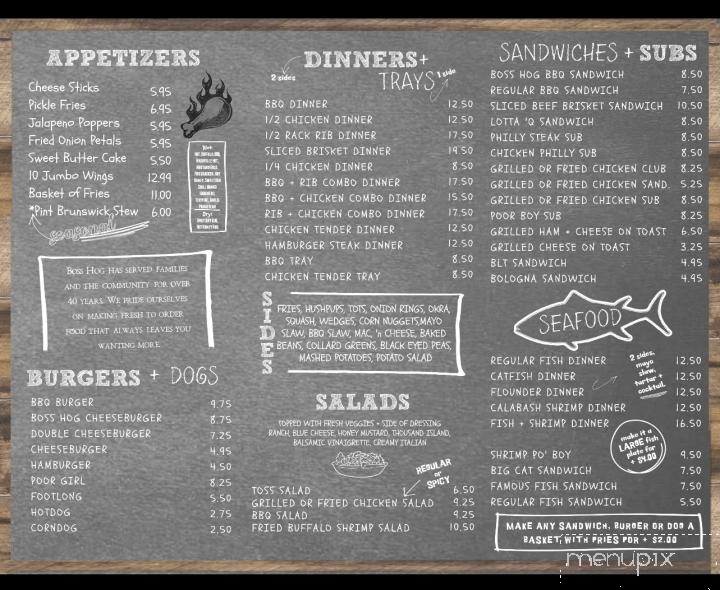 APPETIZERS
Cheese Sticks 5.95
Pickle Fries 6.95
Jalapeno Poppers 5.95
Fried Onion Petals 5.95
Sweet Butter Cake 5.50
10 Jumbo Wings 12.99
Basket of Fries 11.00
*Pint Brunswick Stew 6.00
seasonal
Boss Hog has served families
and the community for over
40 years. We pride ourselves
on making fresh to order
food that always leaves you
wanting more.
BURGERS + DOGS
BBQ BURGER 9.75
BOSS HOG CHEESEBURGER 8.75
DOUBLE CHEESEBURGER 7.25
CHEESEBURGER 4.95
HAMBURGER 4.50
POOR GIRL 8.25
FOOTLONG 5.50
HOTDOG 2.75
CORNDOG 2.50
DINNERS+
TRAYS
2 sides
1 side
BBQ DINNER 12.50
1/2 CHICKEN DINNER 12.50
1/2 RACK RIB DINNER 17.50
SLICED BRISKET DINNER 19.50
1/4 CHICKEN DINNER 8.50
BBQ + RIB COMBO DINNER 17.50
BBQ + CHICKEN COMBO DINNER 15.50
RIB + CHICKEN COMBO DINNER 17.50
CHICKEN TENDER DINNER 12.50
HAMBURGER STEAK DINNER 12.50
BBQ TRAY 8.50
CHICKEN TENDER TRAY 8.50
SIDES
FRIES, HUSHPUPS, TOTS, ONION RINGS, OKRA,
SQUASH, WEDGES, CORN NUGGETS,MAYO
SLAW, BBQ SLAW, MAC, 'n CHEESE, BAKED
BEANS, COLLARD GREENS, BLACK EYED PEAS,
MASHED POTATOES, POTATO SALAD
SALADS
TOPPED WITH FRESH VEGGIES + SIDE OF DRESSING
RANCH, BLUE CHEESE, HONEY MUSTARD, THOUSAND ISLAND,
BALSAMIC VINAIGRETTE, CREAMY ITALIAN
REGULAR
or
SPICY
TOSS SALAD 6.50
GRILLED OR FRIED CHICKEN SALAD 9.25
BBQ SALAD 9.25
FRIED BUFFALO SHRIMP SALAD 10.50
SANDWICHES + SUBS
BOSS HOG BBQ SANDWICH 8.50
REGULAR BBQ SANDWICH 7.50
SLICED BEEF BRISKET SANDWICH 10.50
LOTTA 'Q SANDWICH 8.50
PHILLY STEAK SUB 8.50
CHICKEN PHILLY SUB 8.50
GRILLED OR FRIED CHICKEN CLUB 8.25
GRILLED OR FRIED CHICKEN SAND. 5.25
GRILLED OR FRIED CHICKEN SUB 8.50
POOR BOY SUB 8.25
GRILLED HAM + CHEESE ON TOAST 6.50
GRILLED CHEESE ON TOAST 3.25
BLT SANDWICH 4.95
BOLOGNA SANDWICH 4.95
SEAFOOD
2 sides,
mayo
slaw,
tartar +
cocktail.
REGULAR FISH DINNER 12.50
CATFISH DINNER 12.50
FLOUNDER DINNER 12.50
CALABASH SHRIMP DINNER 12.50
FISH + SHRIMP DINNER 16.50
make it a
LARGE fish
plate for
+ $4.00
SHRIMP PO' BOY 9.50
BIG CAT SANDWICH 7.50
FAMOUS FISH SANDWICH 7.50
REGULAR FISH SANDWICH 5.50
MAKE ANY SANDWICH, BURGER OR DOG A
BASKET, WITH FRIES FOR + $2.00
menupix